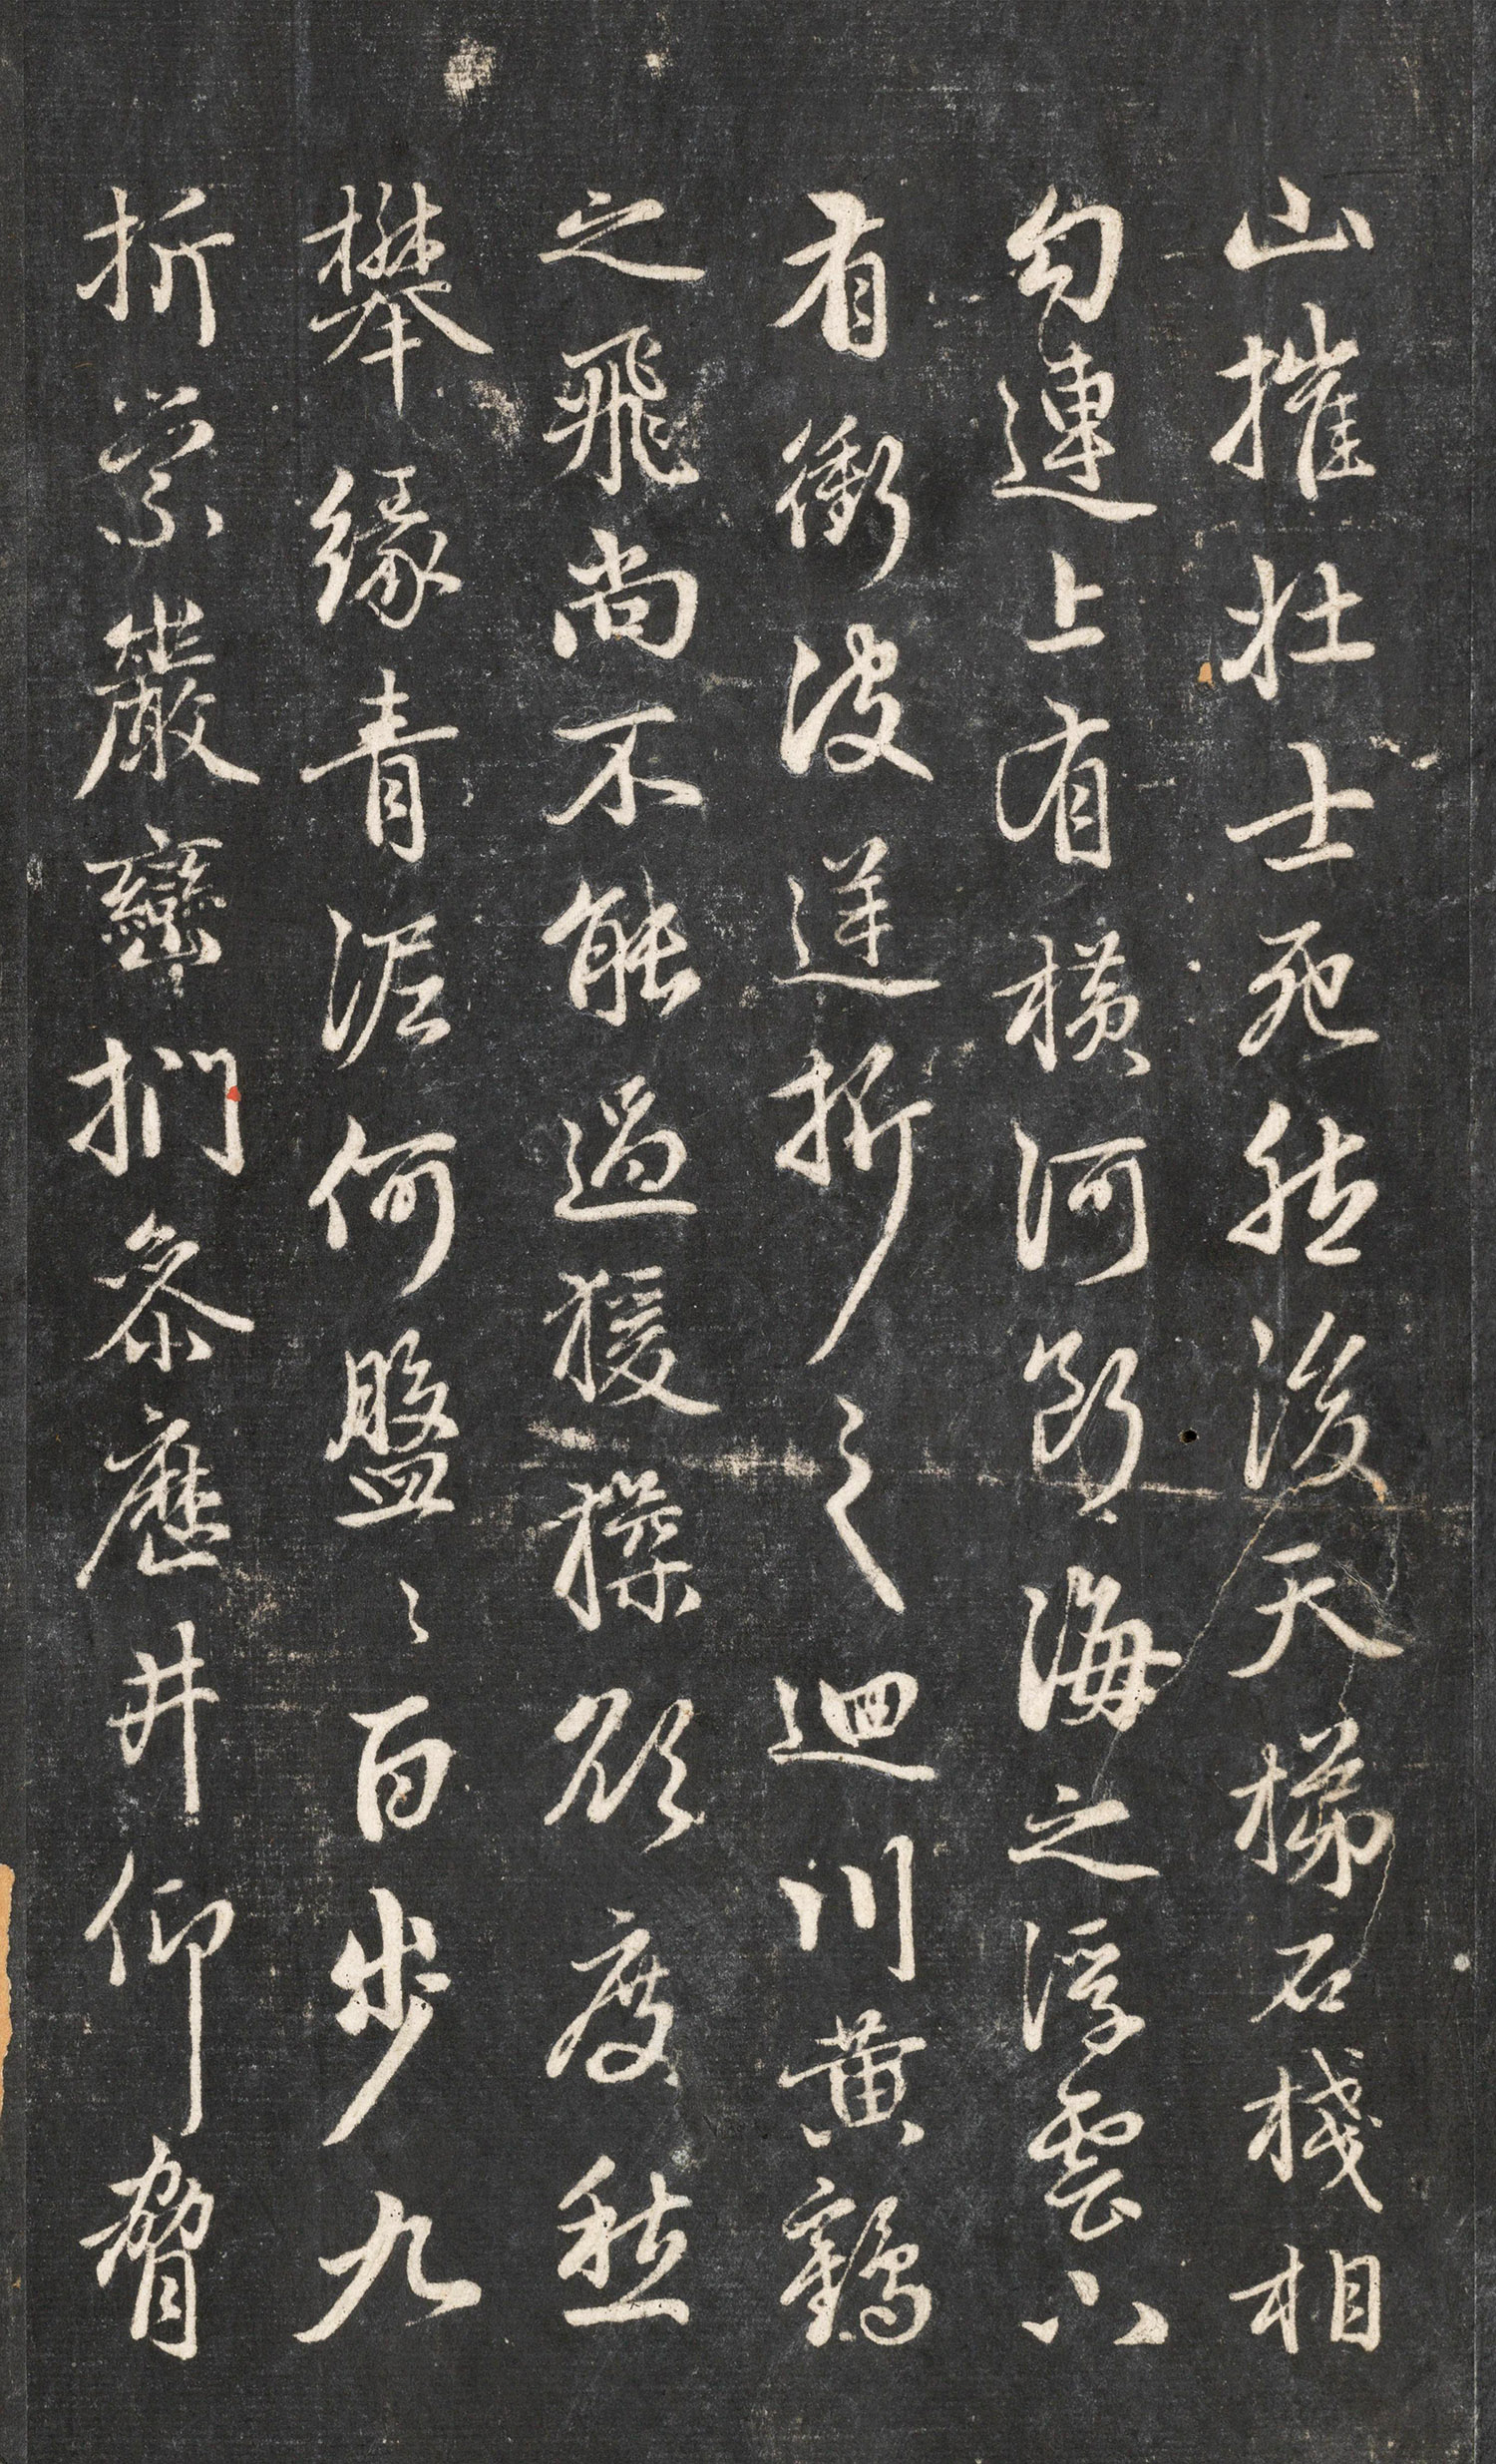 山摧壯士死然後天梯石棧相
勾連上有橫河斷海之浮雲下
有衝波逆折之迴川黃鶴
之飛尚不能過猨猱欲度愁
攀緣青泥何盤〻百步九
折縈巖巒捫參歷井仰脅